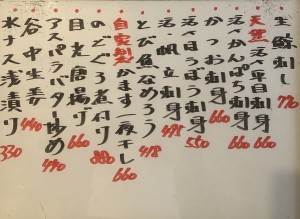 生鯨刺 770
天然 活〆平目刺 660
活〆かんぱち刺身 660
かつお刺身 660
活〆ほうぼう刺身 550
活帆立刺身 495
とび魚なめろう 418
自家製 かます一夜干し 660
のどぐろ煮付け 880
目光唐揚げ 660
アスパラバター炒め 440
谷中生姜 440
水ナス浅漬け 330